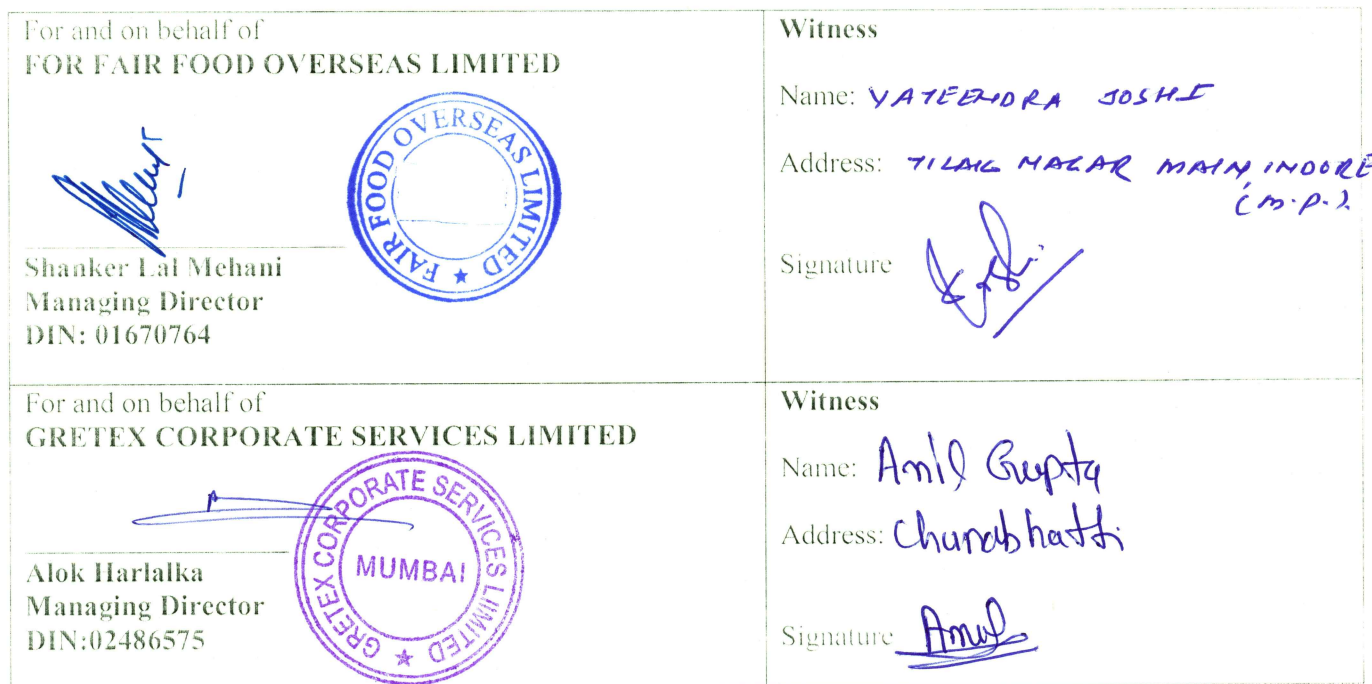 For and on behalf of
FOR FAIR FOOD OVERSEAS LIMITED
FAIR FOOD OVERSEAS LIMITED ★
Shanker Lal Mehani
Managing Director
DIN: 01670764
Witness
Name: YATEENDRA JOSHI
Address: TILAK NAGAR MAIN, INDORE
(M.P.).
Signature
For and on behalf of
GRETEX CORPORATE SERVICES LIMITED
GRETEX CORPORATE SERVICES LIMITED ★
MUMBAI
Alok Harlalka
Managing Director
DIN:02486575
Witness
Name: Anil Gupta
Address: Chunabhatti
Signature Anil